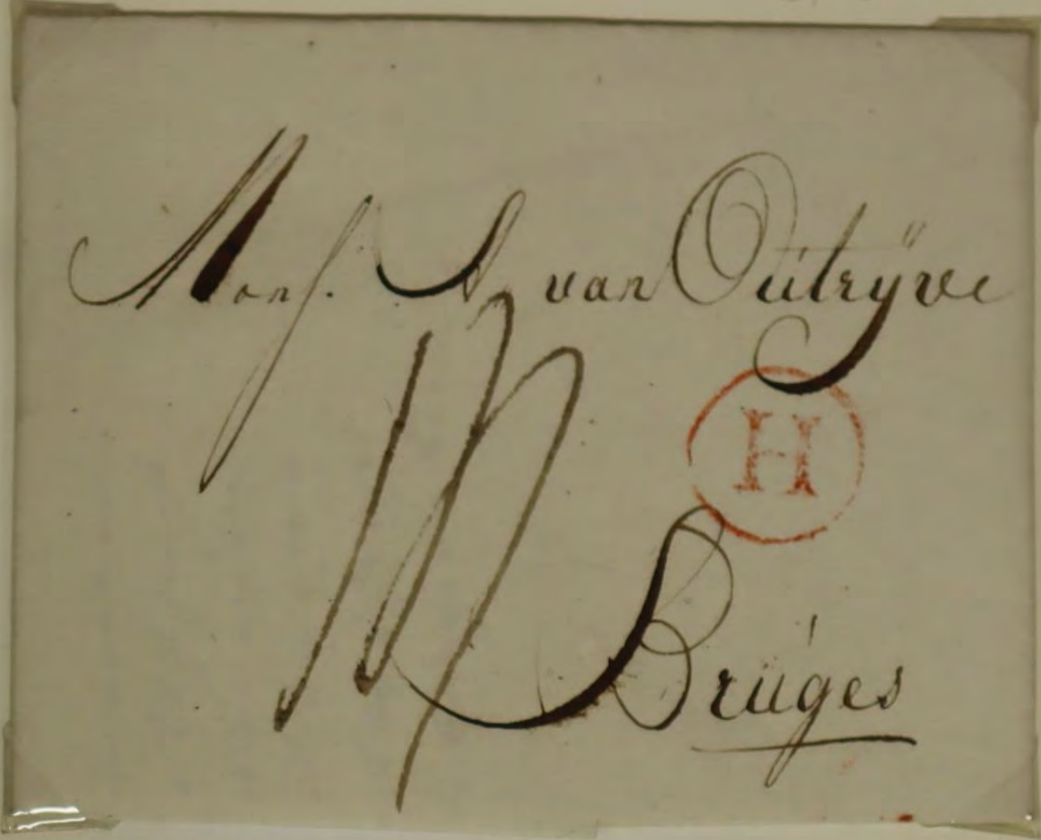 Mons. A. van Outryve
H
Brúges